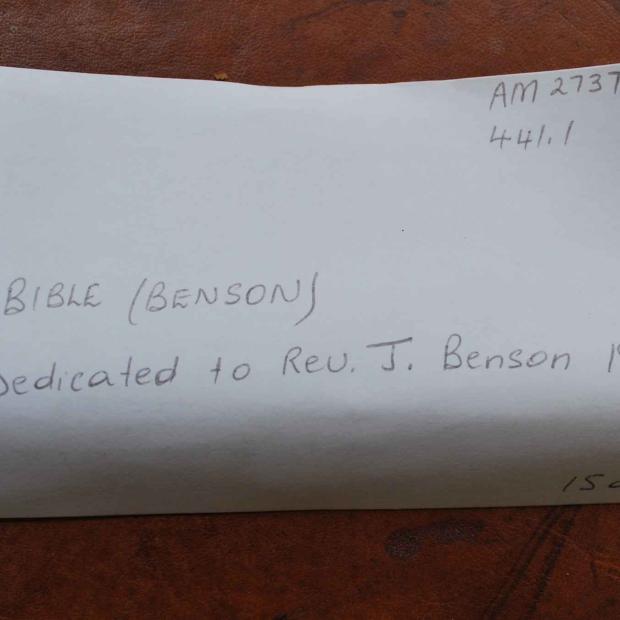 AM 2737
441.1
BIBLE (BENSON)
Dedicated to Rev. J. Benson